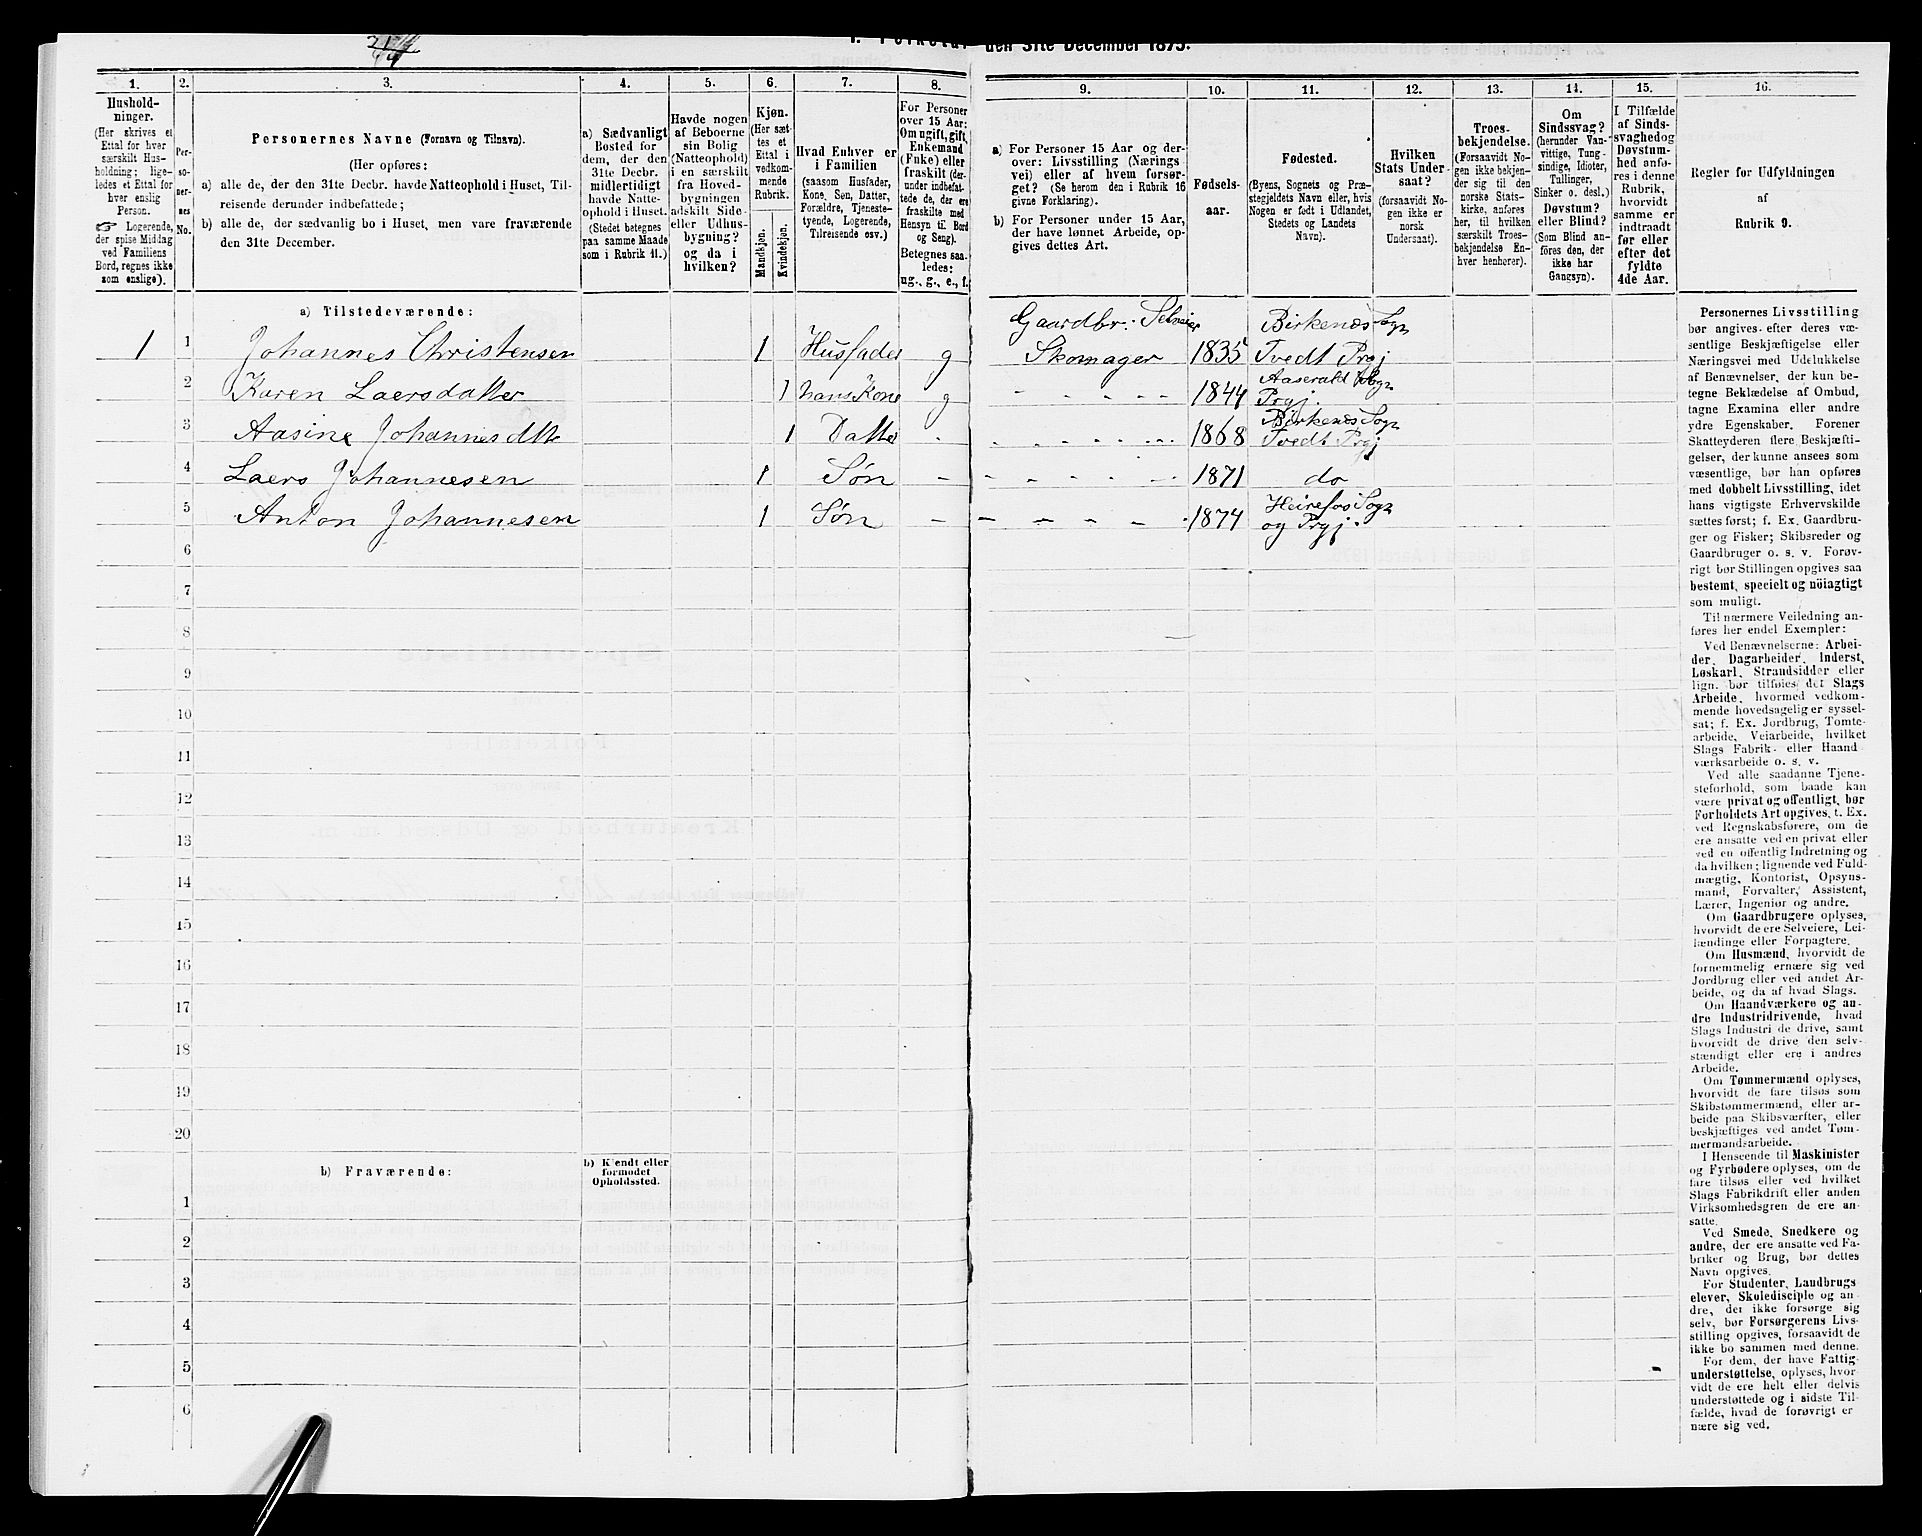 1. Folketal den 31te December 1875.
1.
Hushold-
ninger.
(Her skrives et
Ettal for hver
særskilt Hus-
holdning; lige-
ledes et Ettal for
hver enslig
Person.
☞ Logerende,
der spise Middag
ved Familiens
Bord, regnes ikke
som enslige).
2.
Per-
so-
ner-
nes
No.
3.
Personernes Navne (Fornavn og Tilnavn).
(Her opføres:
a) alle de, der den 31te Decbr. havde Natteophold i Huset, Til-
reisende derunder indbefattede;
b) alle de, der sædvanlig bo i Huset, men vare fraværende
den 31te December.
4.
a) Sædvanligt
Bosted for
dem, der den
31te Decbr.
midlertidigt
havde Natte-
ophold i Huset.
(Stedet betegnes
paa samme Maade
som i Rubrik 11.)
5.
Havde nogen
af Beboerne
sin Bolig
(Natteophold)
i en særskilt
fra Hoved-
bygningen
adskilt Side-
eller Udhus-
bygning?
og da i
hvilken?
6.
Kjøn.
(Her sæt-
tes et
Ettal i
vedkom-
mende
Rubrik.
Mandkjøn.
Kvindekjøn.
7.
Hvad Enhver er
i Familien
(saasom Husfader,
Kone, Søn, Datter,
Forældre, Tjeneste-
tyende, Logerende,
Tilreisende osv.)
8.
For Personer
over 15 Aar:
Om ugift, gift,
Enkemand
(Enke) eller
fraskilt (der-
under indbefat-
tede de, der ere
fraskilte med
Hensyn til Bord
og Seng).
Betegnes saa-
ledes:
ug., g., e., f.
9.
a) For Personer 15 Aar og der-
over: Livsstilling (Nærings-
vei) eller af hvem forsør-
get? (Se herom den i Rubrik 16
givne Forklaring).
b) For Personer under 15 Aar,
der have lønnet Arbeide, op-
gives dettes Art.
10.
Fødsels-
aar.
11.
Fødested.
(Byens, Sognets og Præ-
stegjeldets Navn eller, hvis
Nogen er født i Udlandet,
Stedets og Landets
Navn).
12.
Hvilken
Stats Under-
saat?
(forsaavidt No-
gen ikke er
norsk
Undersaat).
13.
Troes-
bekjendelse.
(Forsaavidt No-
gen ikke bekjen-
der sig til den
norske Stats-
kirke, anføres
her, til hvilken
særskilt Troes-
bekjendelse En-
hver henhører).
14.
Om
Sindssvag?
(herunder Van-
vittige, Tung-
sindige, Idioter,
Tullinger,
Sinker o. desl.)
Døvstum?
eller Blind?
(Som Blind an-
føres den, der
ikke har
Gangsyn).
15.
I Tilfælde
af Sinds-
svaghed og
Døvstum-
hed anfø-
res i denne
Rubrik,
hvorvidt
samme er
indtraadt
før eller
efter det
fyldte
4de Aar.
16.
Regler for Udfyldningen
af
Rubrik 9.
a) Tilstedeværende:
1 1 Johannes Christensen 1 Husfader g Gaardbr. Selveier Skomager 1835 Birkenæs Sogn Tvedt Prgj
2 Karen Laersdatter 1 hans Kone g - - - - - 1844 Aaserald Sogn Prgj.
3 Aasine Johannesdtt 1 Datter - - - - - - 1868 Birkenæs Sogn Tvedt Prgj
4 Laers Johannesen 1 Søn - - - - - - 1871 do
5 Anton Johannesen 1 Søn - - - - - - 1874 Heirefos Sogn og Prgj.
6
7
8
9
10
11
12
13
14
15
16
17
18
19
20
b) Fraværende:
b) Kjendt eller
formodet
Opholdssted.
1
2
3
4
5
6
Personernes Livsstilling
bør angives efter deres væ-
sentlige Beskjæftigelse eller
Næringsvei med Udelukkelse
af Benævnelser, der kun be-
tegne Beklædelse af Ombud,
tagne Examina eller andre
ydre Egenskaber. Forener
Skatteyderen flere Beskjæfti-
gelser, der kunne ansees som
væsentlige, bør han opføres
med dobbelt Livsstilling, idet
hans vigtigste Erhvervskilde
sættes først; f. Ex. Gaardbru-
ger og Fisker; Skibsreder og
Gaardbruger o. s. v. Forøv-
rigt bør Stillingen opgives saa
bestemt, specielt og nöiagtigt
som muligt.
Til nærmere Veiledning an-
føres her endel Exempler:
Ved Benævnelserne: Arbei-
der, Dagarbeider, Inderst,
Løskarl, Strandsidder eller
lign. bør tilføies det Slags
Arbeide, hvormed vedkom-
mende hovedsagelig er syssel-
sat; f. Ex. Jordbrug, Tomte-
arbeide, Veiarbeide, hvilket
Slags Fabrik- eller Haand
værksarbeide o. s. v.
Ved alle saadanne Tjene-
steforhold, som baade kan
være privat og offentligt, bør
Forholdets Art opgives, t. Ex.
ved Regnskabsførere, om de
ere ansatte ved en privat eller
ved en offentlig Indretning og
da hvilken; lignende ved Fuld-
mægtig, Kontorist, Opsyns-
mand, Forvalter, Assistent,
Lærer, Ingeniør og andre.
Om Gaardbrugere oplyses,
hvorvidt de ere Selveiere, Lei-
lændinge eller Forpagtere.
Om Husmænd, hvorvidt de
fornemmelig ernære sig ved
Jordbrug eller ved andet Ar-
beide, og da af hvad Slags.
Om Haandværkere og an-
dre Industridrivende, hvad
Slags Industri de drive, samt
hvorvidt de drive den selv-
stændigt eller ere i andres
Arbeide.
Om Tømmermænd oplyses,
hvorvidt de fare tilsøs som
Skibstømmermænd, eller ar-
beide paa Skibsværfter, eller
beskjæftiges ved andet Tøm-
mermandsarbeide.
I Henseende til Maskinister
og Fyrbødere oplyses, om de
fare tilsøs eller ved hvilket
Slags Fabrikdrift eller anden
Virksomhedsgren de ere an-
satte.
Ved Smede, Snedkere og
andre, der ere ansatte ved Fa-
briker og Brug, bør dettes
Navn opgives.
For Studenter, Laudbrugs
elever, Skoledisciple og an
dre, der ikke forsørge sig
selv, bør Forsørgerens Livs-
stilling opgives, forsaavidt de
ikke bo sammen med denne.
For dem, der have Fattig-
understøttelse, oplyses, hvor-
vidt de ere helt eller delvis
understøttede og i sidste Til-
fælde, hvad de forøvrigt er
nære sig ved.